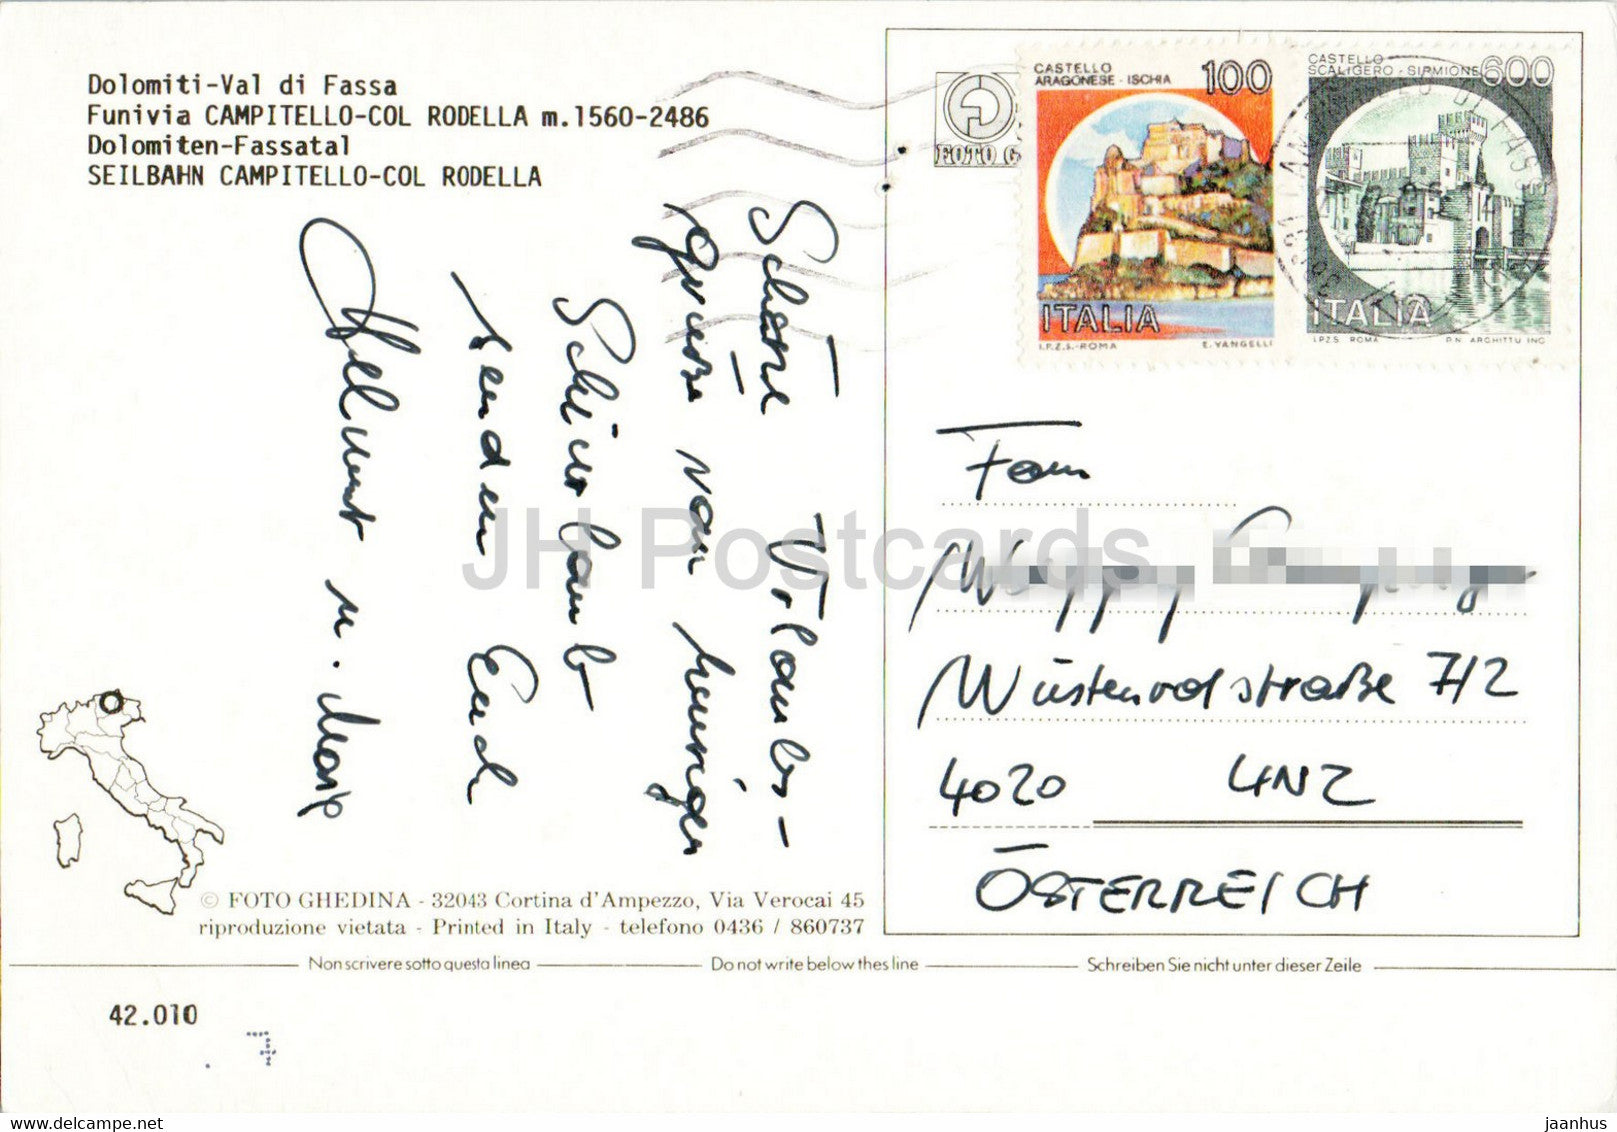 Dolomiti-Val di Fassa
Funivia CAMPITELLO-COL RODELLA m.1560-2486
Dolomiten-Fassatal
SEILBAHN CAMPITELLO-COL RODELLA
FOTO G
CASTELLO
ARAGONESE - ISCHIA 100
ITALIA
I.P.Z.S.-ROMA E. VANGELLI
CASTELLO
SCALIGERO - SIRMIONE 600
ITALIA
I.P.Z.S. ROMA P.N. ARCHITTU INC
Schöne Urlaubs-
grüße vom
Schiurlaub
senden Euch
Helmut u.
Fam
Wüstenrotstraße 7/2
4020 LINZ
ÖSTERREICH
JH Postcards
© FOTO GHEDINA - 32043 Cortina d'Ampezzo, Via Verocai 45
riproduzione vietata - Printed in Italy - telefono 0436 / 860737
Non scrivere sotto questa linea Do not write below thes line Schreiben Sie nicht unter dieser Zeile
42.010
jaanhus